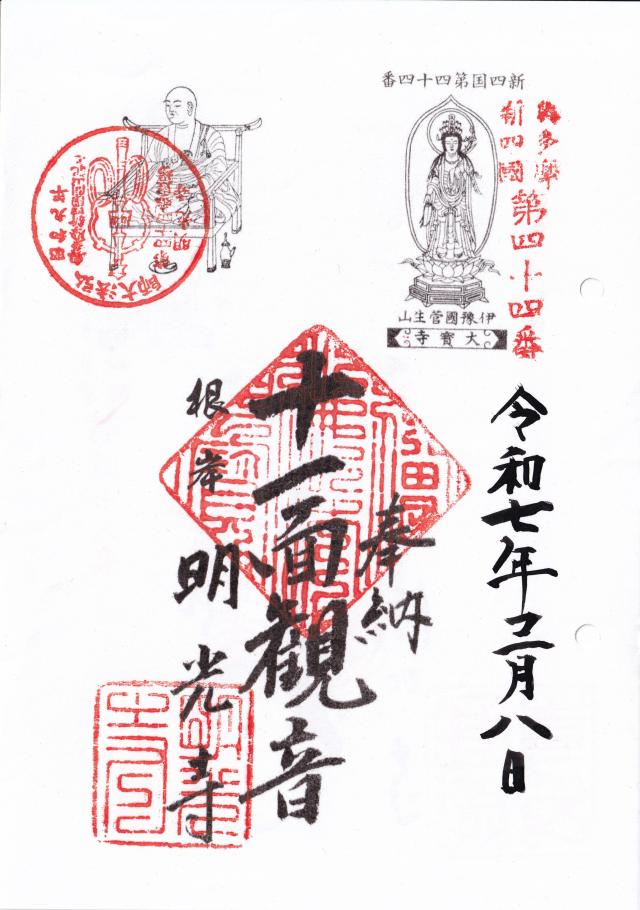 新四国第四十四番
奥多摩
新四國第四十四番
伊豫國菅生山
大寶寺
弘法大師
昭和九年
明光寺
令和七年三月八日
奉納
十一面觀音
根岸
明光寺